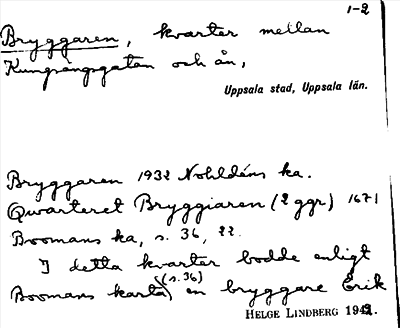 1-2
Bryggaren, kvarter mellan
Kungsängsgatan och ån,
Uppsala stad, Uppsala län.
Bryggaren 1932 Nohldéns ka.
Qwarteret Bryggiaren (2 ggr) 1671
Boomans ka, s. 36, 22.
I detta kvarter bodde enligt
Boomans karta (s.36) en bryggare Erik
HELGE LINDBERG 1942.